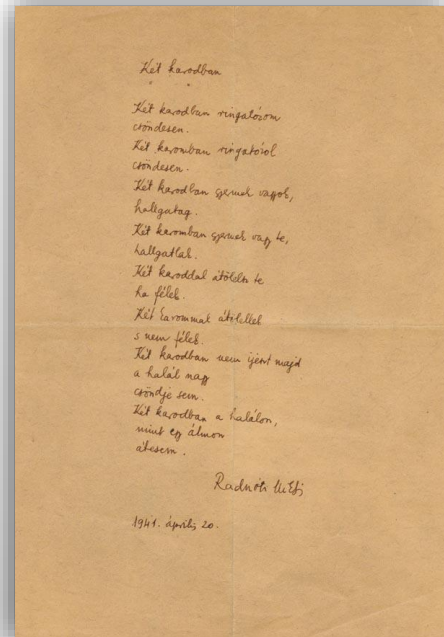 Két karodban
Két karodban ringatózom
csöndesen.
Két karomban ringatózol
csöndesen.
Két karodban gyermek vagyok,
hallgatag.
Két karomban gyermek vagy te,
hallgatlak.
Két karoddal átölelsz te
ha félek.
Két karommal átölellek
s nem félek.
Két karodban nem ijeszt majd
a halál nagy
csöndje sem.
Két karodban a halálon,
mint egy álmon
átesem.
Radnóti Miklós
1941. április 20.